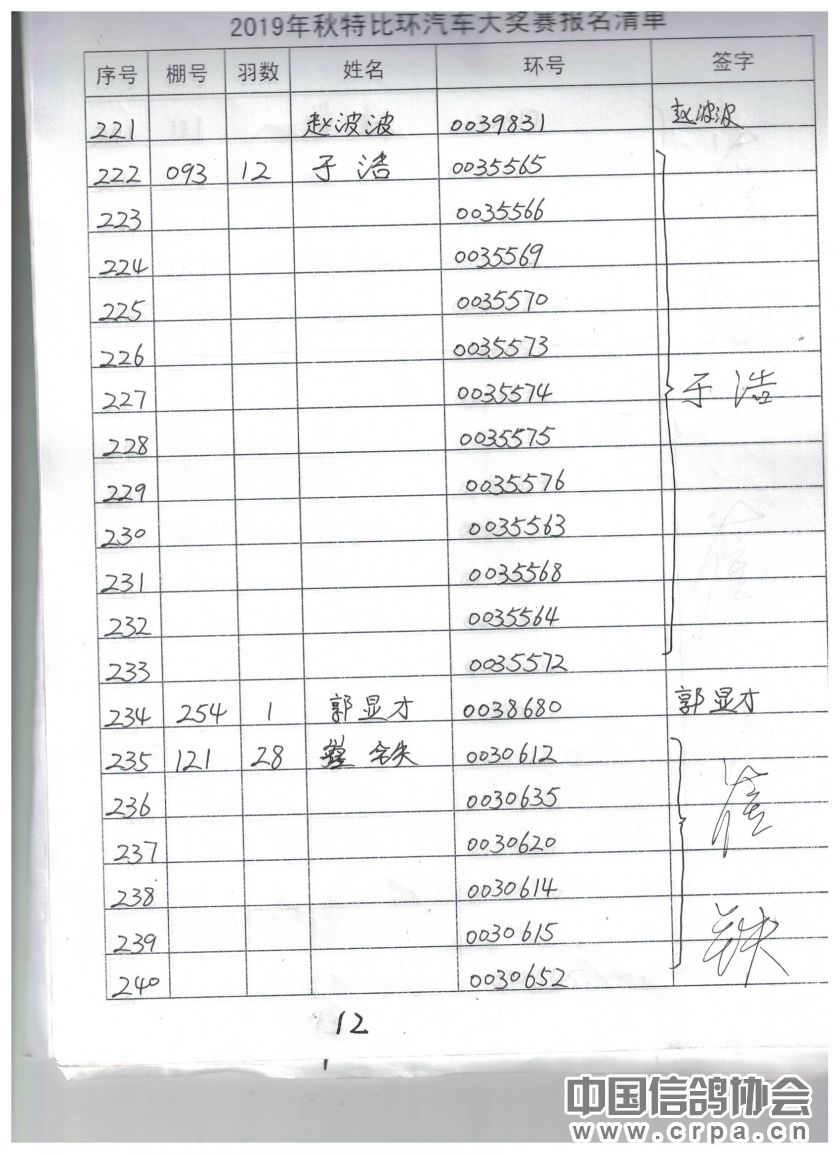 2019年秋特比环汽车大奖赛报名清单
序号 棚号 羽数 姓名 环号 签字
221 赵波波 0039831 赵波波
222 093 12 于浩 0035565
223 0035566
224 0035569
225 0035570
226 0035573
227 0035574 于浩
228 0035575
229 0035576
230 0035563
231 0035568
232 0035564
233 0035572
234 254 1 郭显才 0038680 郭显才
235 121 28 铁 0030612
236 0030635 崔
237 0030620
238 0030614
239 0030615 铁
240 0030652
12
中国信鸽协会
www.crpa.cn